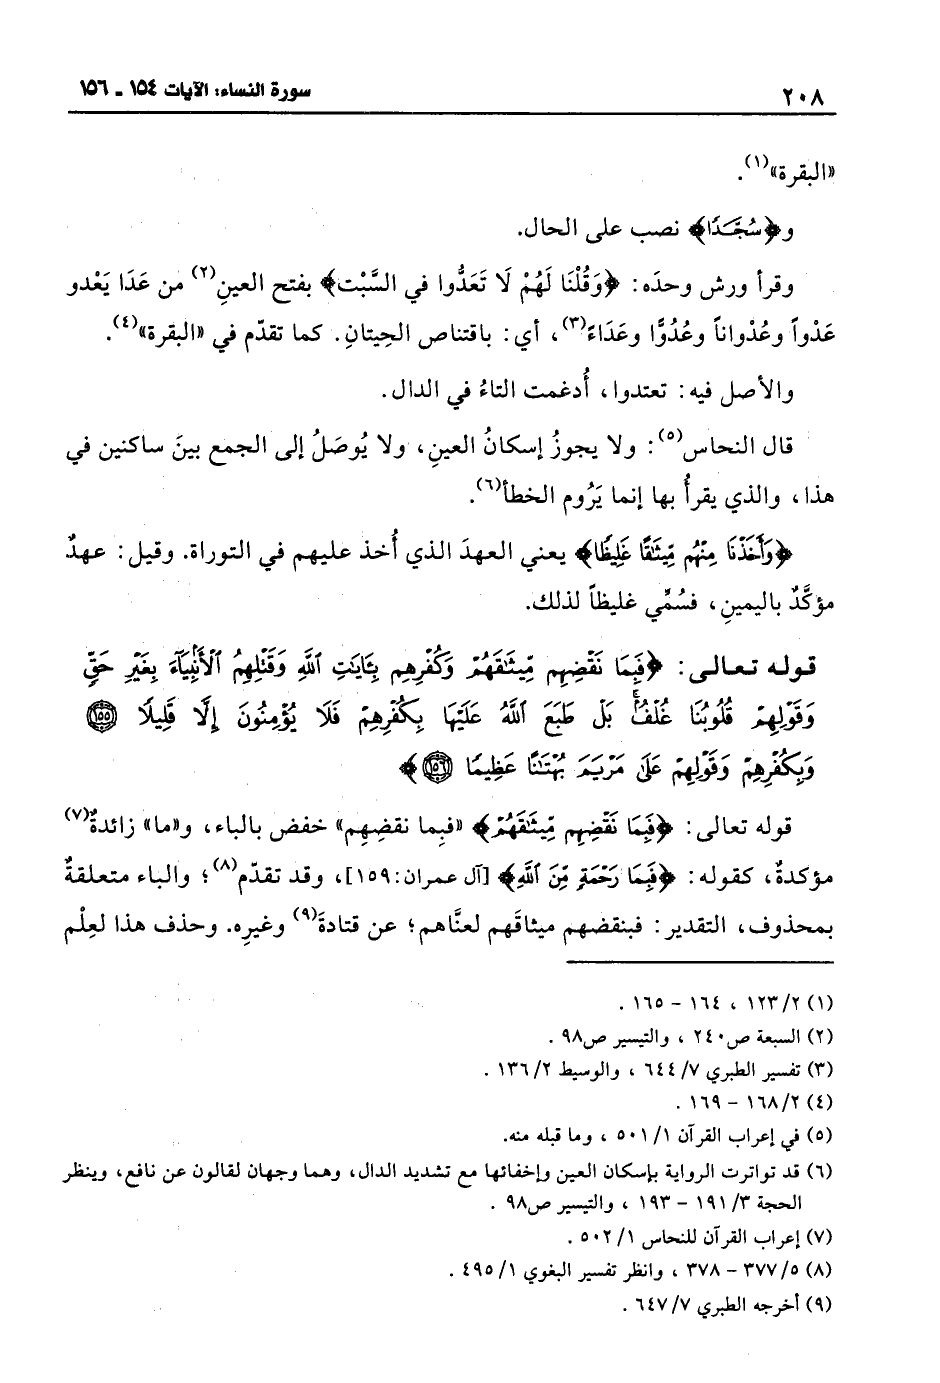 ٢٠٨
سورة النساء: الآيات ١٥٤ ـ ١٥٦
«البقرة»(١).
و﴿سُجَّدًا﴾ نصب على الحال.
وقرأ ورش وحدَه: ﴿وَقُلْنَا لَهُمْ لَا تَعَدُّوا في السَّبْت﴾ بفتح العينِ(٢) من عَدَا يَعْدو
عَدْواً وعُدْواناً وعُدُوًّا وعَدَاءً(٣)، أي: باقتناص الحِيتانِ. كما تقدّم في «البقرة»(٤).
والأصل فيه: تعتدوا، أُدغمت التاءُ في الدال.
قال النحاس(٥): ولا يجوزُ إسكانُ العينِ، ولا يُوصَلُ إلى الجمع بينَ ساكنين في
هذا، والذي يقرأُ بها إنما يَرُوم الخطأ(٦).
﴿وَأَخَذْنَا مِنْهُم مِّيثَٰقًا غَلِيظًا﴾ يعني العهدَ الذي أُخذ عليهم في التوراة. وقيل: عهدٌ
مؤكَّدٌ باليمينِ، فسُمِّي غليظاً لذلك.
قوله تعالى: ﴿فَبِمَا نَقْضِهِم مِّيثَٰقَهُمْ وَكُفْرِهِم بِـَٔايَٰتِ ٱللَّهِ وَقَتْلِهِمُ ٱلْأَنۢبِيَآءَ بِغَيْرِ حَقٍّ
وَقَوْلِهِمْ قُلُوبُنَا غُلْفٌۢ ۚ بَلْ طَبَعَ ٱللَّهُ عَلَيْهَا بِكُفْرِهِمْ فَلَا يُؤْمِنُونَ إِلَّا قَلِيلًا ١٥٥
وَبِكُفْرِهِمْ وَقَوْلِهِمْ عَلَىٰ مَرْيَمَ بُهْتَٰنًا عَظِيمًا ١٥٦﴾
قوله تعالى: ﴿فَبِمَا نَقْضِهِم مِّيثَٰقَهُمْ﴾ «فبِما نقضِهِم» خفض بالباء، و«ما» زائدةٌ(٧)
مؤكدةٌ، كقوله: ﴿فَبِمَا رَحْمَةٍ مِّنَ ٱللَّهِ﴾ [آل عمران: ١٥٩]، وقد تقدّم(٨)؛ والباء متعلقةٌ
بمحذوف، التقدير: فبنقضهم ميثاقَهم لعنَّاهم؛ عن قتادةَ(٩) وغيرِه. وحذف هذا لعِلْم
(١) ١٢٣/٢ ، ١٦٤ - ١٦٥ .
(٢) السبعة ص٢٤٠ ، والتيسير ص٩٨ .
(٣) تفسير الطبري ٦٤٤/٧ ، والوسيط ١٣٦/٢ .
(٤) ١٦٨/٢ - ١٦٩ .
(٥) في إعراب القرآن ٥٠١/١ ، وما قبله منه.
(٦) قد تواترت الرواية بإسكان العين وإخفائها مع تشديد الدال، وهما وجهان لقالون عن نافع، وينظر
الحجة ١٩١/٣ - ١٩٣ ، والتيسير ص٩٨ .
(٧) إعراب القرآن للنحاس ٥٠٢/١ .
(٨) ٣٧٧/٥ - ٣٧٨ ، وانظر تفسير البغوي ٤٩٥/١ .
(٩) أخرجه الطبري ٦٤٧/٧ .